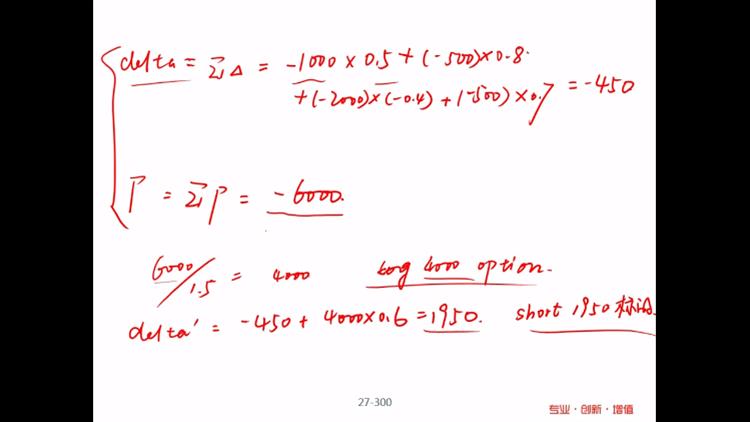 delta = ΣΔ = -1000 × 0.5 + (-500) × 0.8
+ (-2000) × (-0.4) + (-500) × 0.7 = -450
Γ = ΣΓ = -6000.
6000/1.5 = 4000 long 4000 option.
delta' = -450 + 4000×0.6 = 1950. short 1950 标的.
27-300
专业·创新·增值